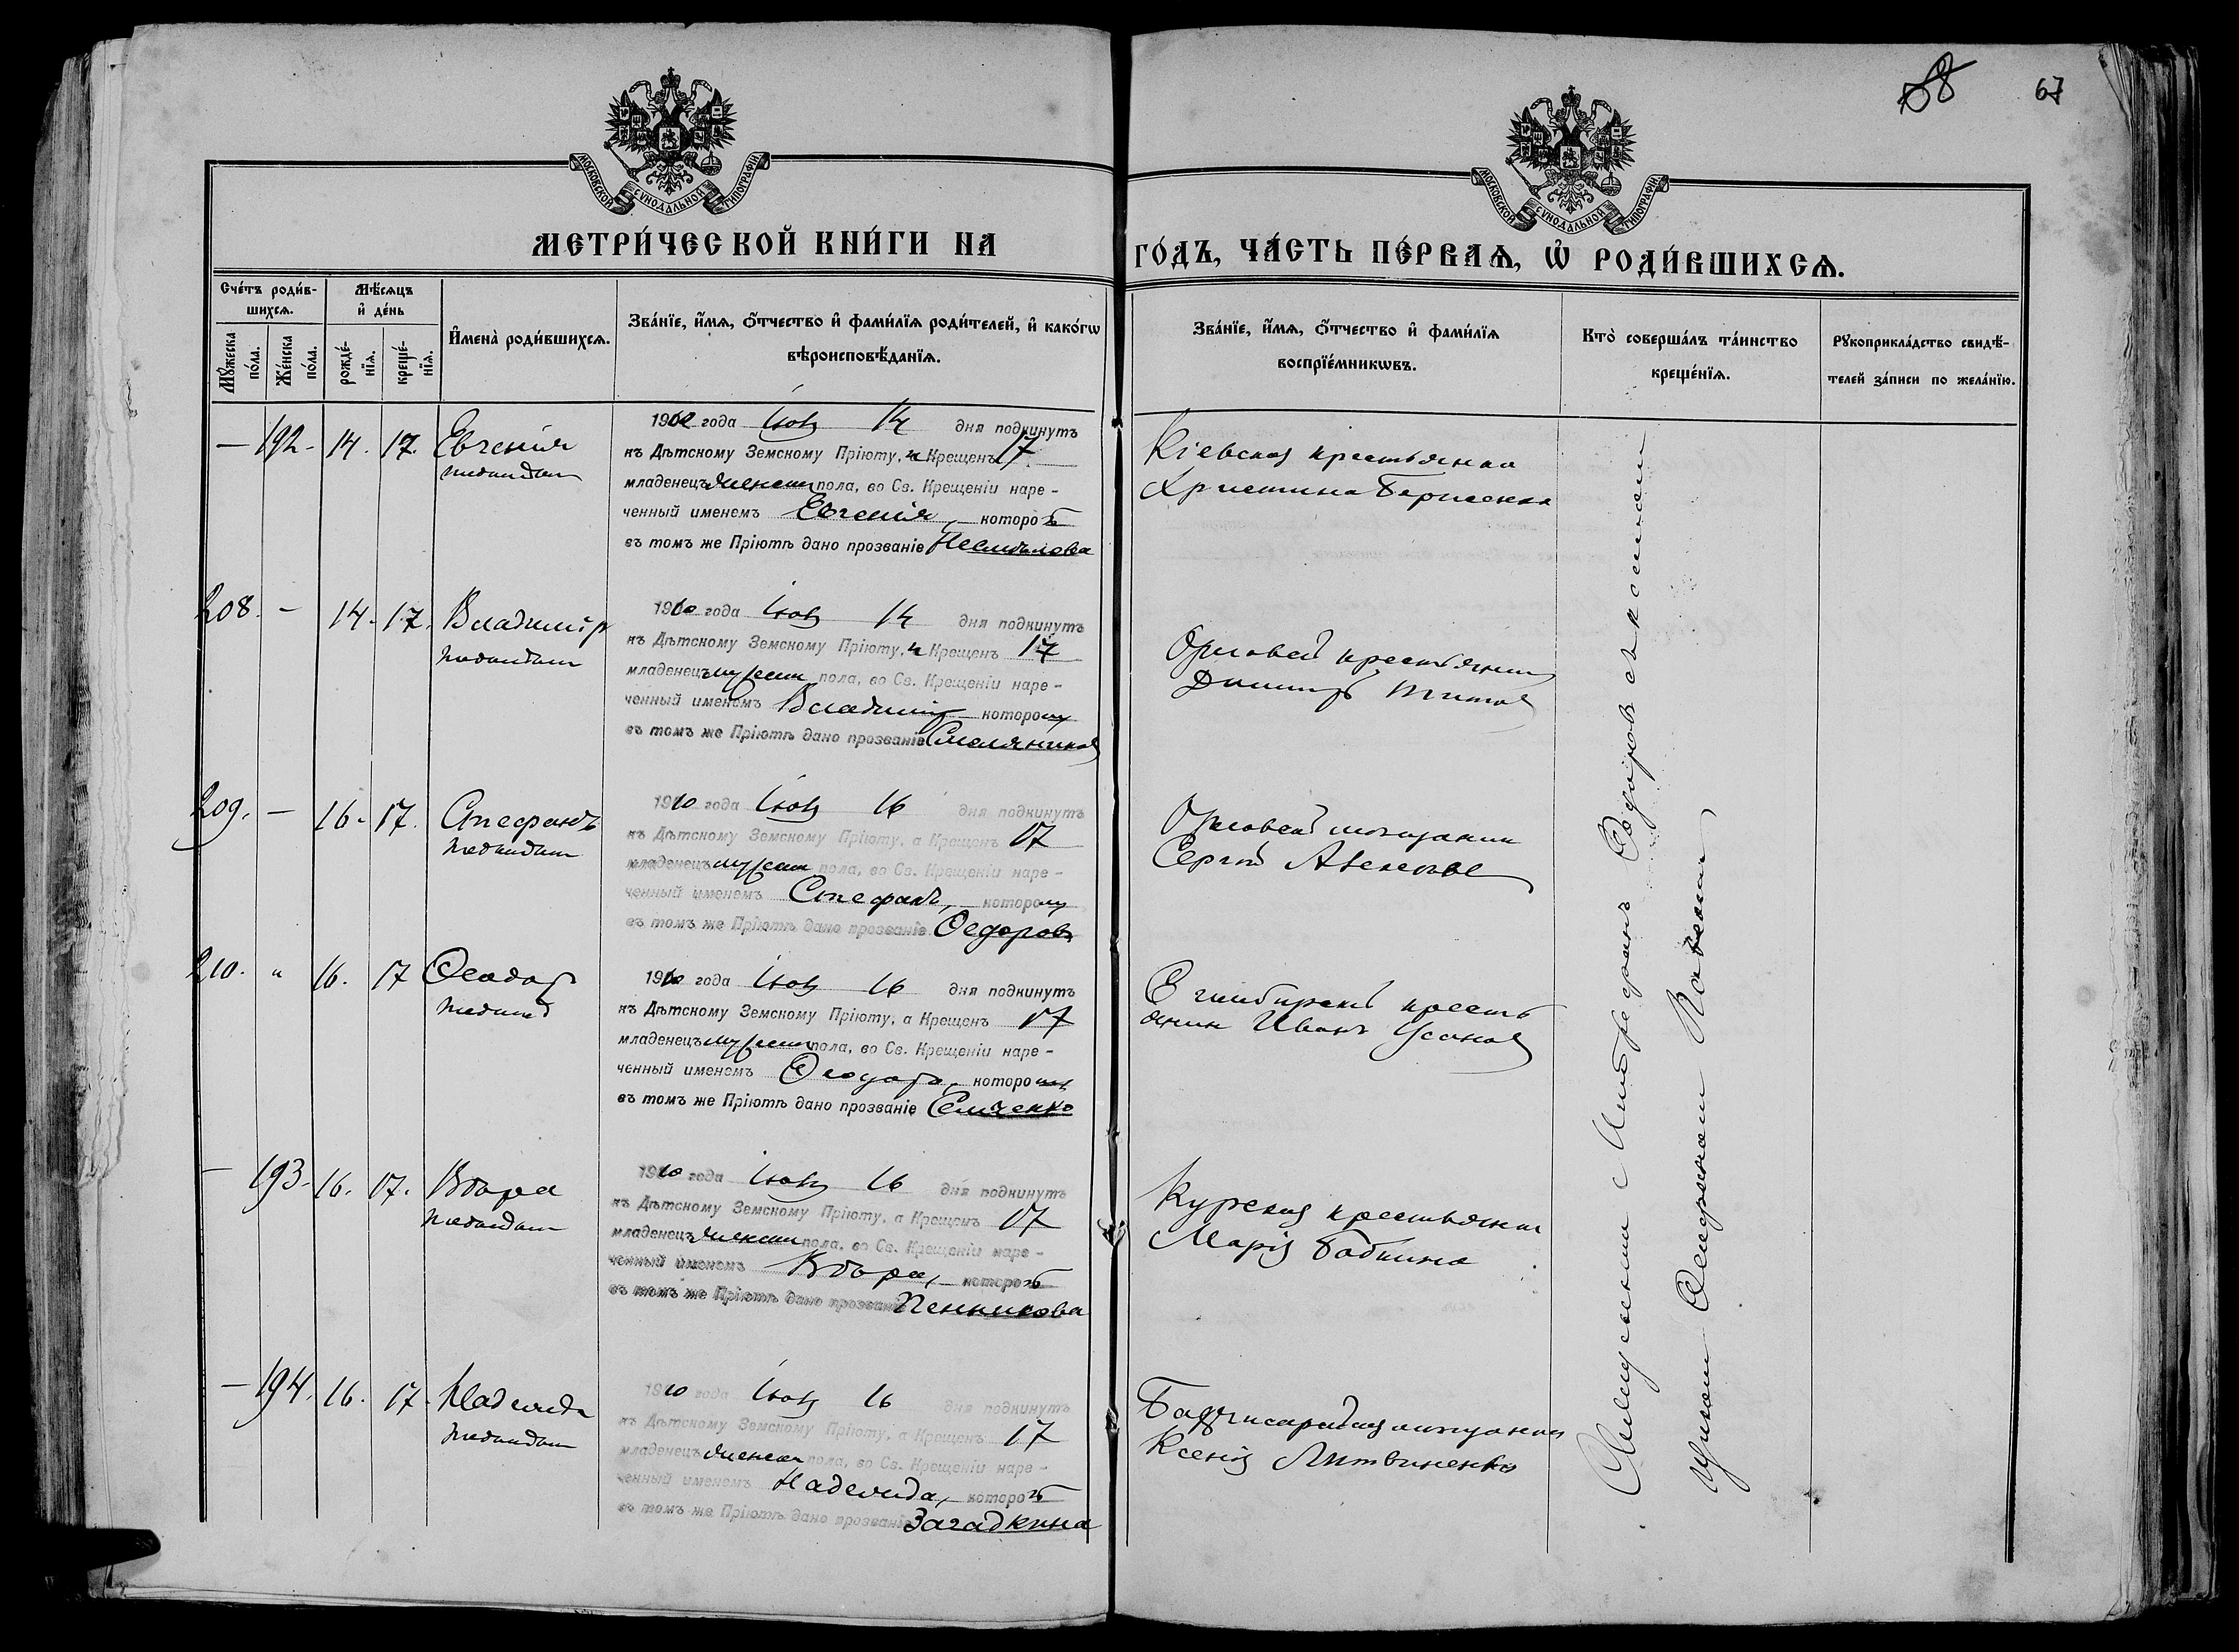 88
67
МОСКОВСКОЙ СѴНОДАЛЬНОЙ ТИПОГРАФІИ
МОСКОВСКОЙ СѴНОДАЛЬНОЙ ТИПОГРАФІИ
МЕТРИ́ЧЕСКОЙ КНИ́ГИ НА
ГО́ДЪ, ЧА́СТЬ ПЕ́РВАѦ, Ѡ҆ РОДИ́ВШИХСѦ.
Сче́тъ роди́в-
шихсѧ.
Мꙋ́жеска
по́ла.
Же́нска
по́ла.
Мѣ́сѧцъ
и҆ де́нь
рожде́-
нїѧ.
креще́-
нїѧ.
И҆мена̀ роди́вшихсѧ.
Зва́нїе, и҆́мѧ, ѻ҆́тчество и҆ фами́лїѧ роди́телей, и҆ како́гѡ
вѣроисповѣ́данїѧ.
Зва́нїе, и҆́мѧ, ѻ҆́тчество и҆ фами́лїѧ
воспрїе́мникѡвъ.
Кто̀ соверша́лъ та́инство
креще́нїѧ.
Рꙋкоприкла́дство свидѣ́-
телей за́писи по жела́нїю.
— 192. 14. 17. Евгенія
1910 года Іюля 14 дня подкинутъ
къ Дѣтскому Земскому Пріюту, и Крещенъ 17
младенецъ женскаго пола, во Св. Крещеніи наре-
ченный именемъ Евгенія, которой
въ томъ же Пріютѣ дано прозваніе
Кіевская крестьянка
Христина
208. — 14. 17. Владиміръ
1910 года Іюля 14 дня подкинутъ
къ Дѣтскому Земскому Пріюту, и Крещенъ 17
младенецъ мужскаго пола, во Св. Крещеніи наре-
ченный именемъ Владиміръ которому
въ томъ же Пріютѣ дано прозваніе
Орловскій крестьянинъ
Димитрій Титовъ
209. — 16. 17. Стефанъ
1910 года Іюля 16 дня подкинутъ
къ Дѣтскому Земскому Пріюту, а Крещенъ 17
младенецъ мужскаго пола, во Св. Крещеніи наре-
ченный именемъ Стефанъ, которому
въ томъ же Пріютѣ дано прозваніе Федоровъ
Орловскій мѣщанинъ
Сергій
210. " 16. 17 Ѳеодоръ
1910 года Іюля 16 дня подкинутъ
къ Дѣтскому Земскому Пріюту, а Крещенъ 17
младенецъ мужскаго пола, во Св. Крещеніи наре-
ченный именемъ Ѳеодоръ, которому
въ томъ же Пріютѣ дано прозваніе Семченко
Симбирскій кресть
янинъ Иванъ Усановъ
— 193. 16. 17. Вѣра
1910 года Іюля 16 дня подкинутъ
къ Дѣтскому Земскому Пріюту, а Крещенъ 17
младенецъ женскаго пола, во Св. Крещеніи наре-
ченный именемъ Вѣра, которой
въ томъ же Пріютѣ дано прозваніе Пенникова
Курская крестьянка
Марія Бабкина
— 194. 16. 17. Надежда
1910 года Іюля 16 дня подкинутъ
къ Дѣтскому Земскому Пріюту, а Крещенъ 17
младенецъ женскаго пола, во Св. Крещеніи наре-
ченный именемъ Надежда, которой
въ томъ же Пріютѣ дано прозваніе Загадкина
Бахчисарайская мѣщанка
Ксенія Литвиненко